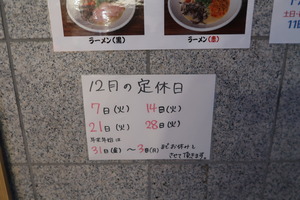 ラーメン(黒)
ラーメン(赤)
土日・
11
12月の定休日
7日(火) 14日(火)
21日(火) 28日(火)
年末年始は
31日(金) ～ 3日(月) までお休みと
させて頂きます。